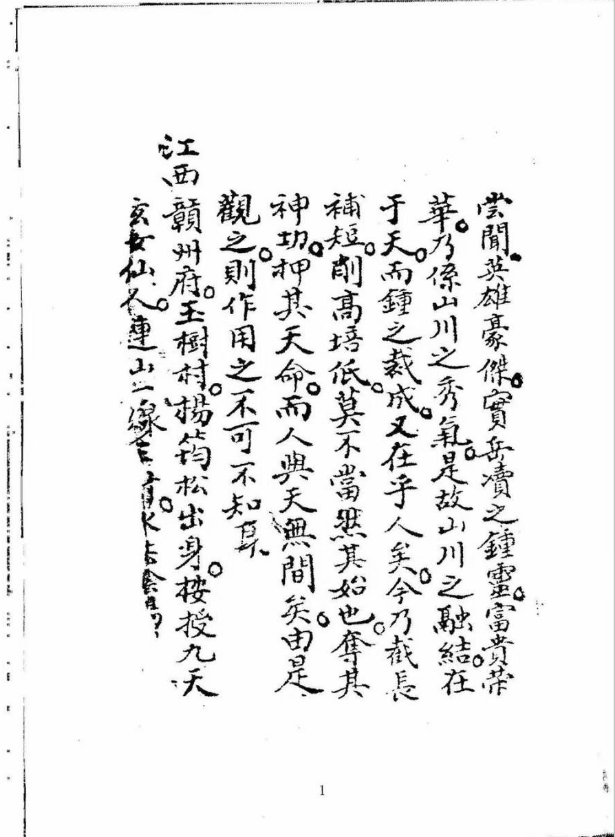 嘗聞。英雄豪傑。實岳瀆之鍾靈。富貴榮
華。乃係山川之秀氣。是故山川之融結。在
于天。而鍾之裁成。又在乎人矣。今乃截長
補短。削高培低。莫不當然其始也。奪其
神功。押其天命。而人與天無間矣。由是
觀之。則作用之不可不知耳
江西贛州府。玉樹村。楊筠松出身。接授九天
玄女仙人。連山一
1